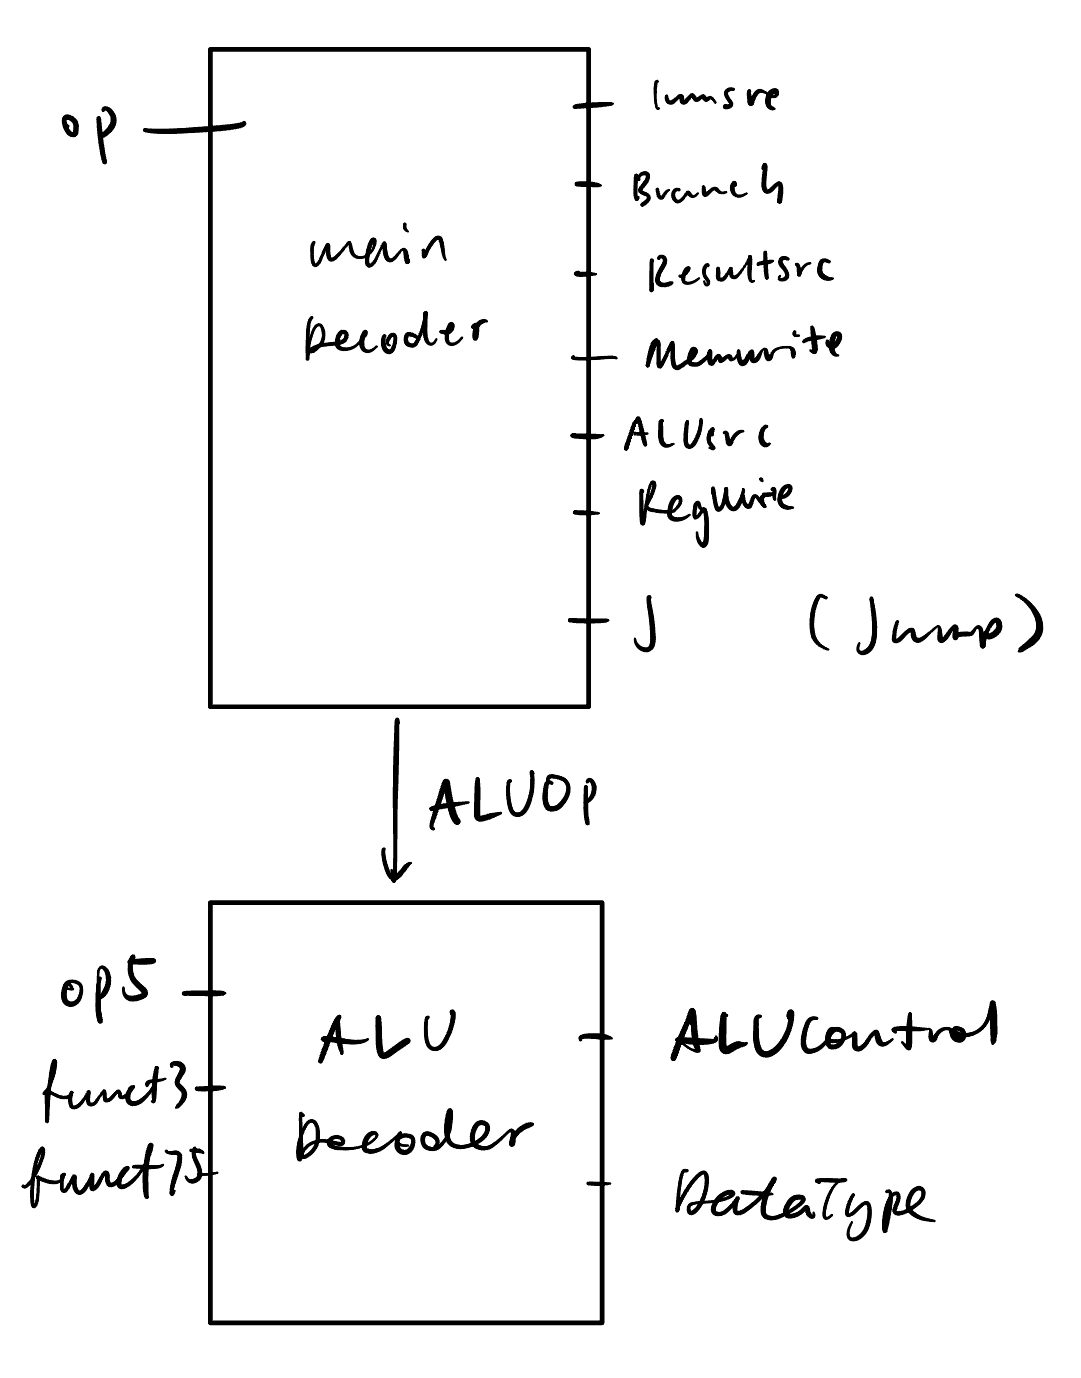 op
Immsrc
Branch
main
Decoder
Resultsrc
Memwrite
ALUsrc
RegWrite
J (Jump)
ALUOp
op5
funct3
funct75
ALU
Decoder
ALUControl
DataType